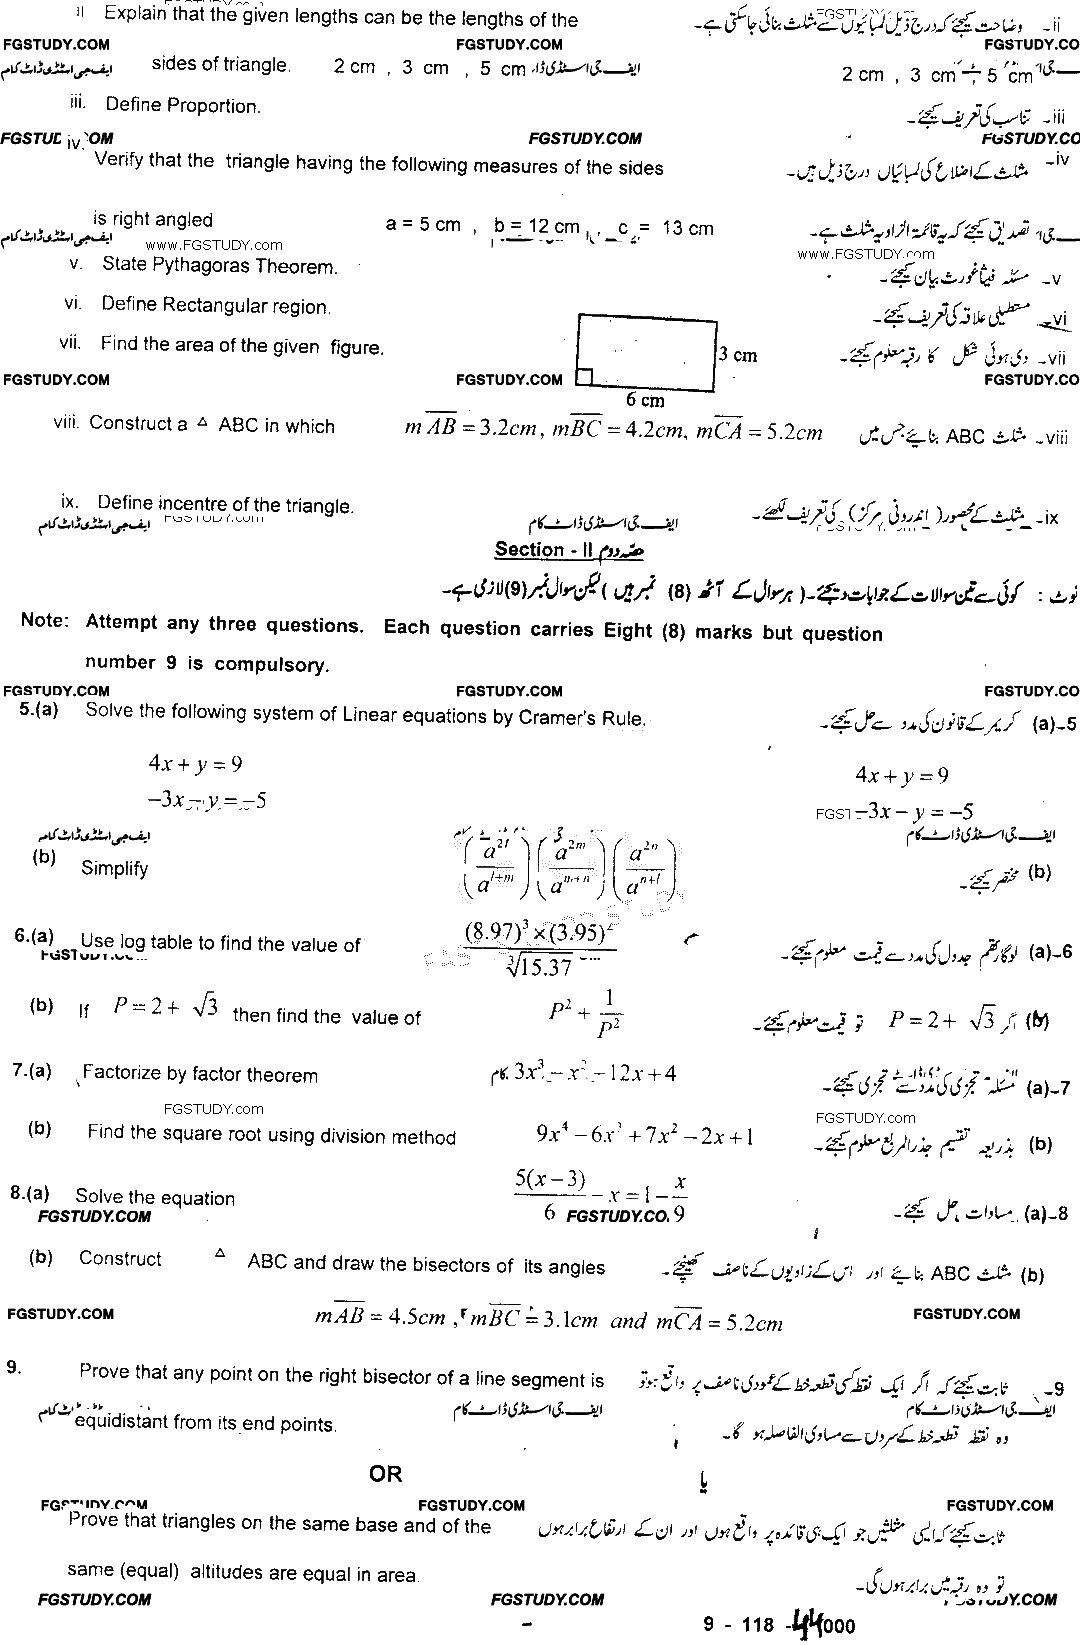 ii Explain that the given lengths can be the lengths of the
ii- وضاحت کیجئے کہ درج ذیل لمبائیوں سے مثلث بنائی جاسکتی ہے۔
FGSTUDY.COM FGSTUDY.COM FGSTUDY.CO
ایف جی اسٹڈی ڈاٹ کام sides of triangle. 2 cm , 3 cm , 5 cm
2 cm , 3 cm , 5 cm
iii. Define Proportion.
iii- تناسب کی تعریف کیجئے۔
FGSTUD OM FGSTUDY.COM FGSTUDY.CO
iv. Verify that the triangle having the following measures of the sides
iv- مثلث کے اضلاع کی لمبائیاں درج ذیل ہیں۔
is right angled a = 5 cm , b = 12 cm , c = 13 cm
تصدیق کیجئے کہ یہ قائمۃ الزاویہ مثلث ہے۔
ایف جی اسٹڈی ڈاٹ کام www.FGSTUDY.com www.FGSTUDY.com
v. State Pythagoras Theorem.
v- مسئلہ فیثاغورث بیان کیجئے۔
vi. Define Rectangular region.
vi- مستطیلی علاقہ کی تعریف کیجئے۔
vii. Find the area of the given figure.
3 cm
vii- دی ہوئی شکل کا رقبہ معلوم کیجئے۔
FGSTUDY.COM FGSTUDY.COM FGSTUDY.CO
6 cm
viii. Construct a △ ABC in which m AB = 3.2cm, mBC = 4.2cm, mCA = 5.2cm
viii- مثلث ABC بنائیے جس میں
ix. Define incentre of the triangle.
ix- مثلث کے محصور( اندرونی مرکز) کی تعریف لکھئے۔
ایف جی اسٹڈی ڈاٹ کام FGSTUDY.com ایف جی اسٹڈی ڈاٹ کام
Section - II حصہ دوم
نوٹ : کوئی سے تین سوالات کے جوابات دیجئے۔( ہر سوال کے آٹھ (8) نمبر ہیں )لیکن سوال نمبر(9)لازمی ہے۔
Note: Attempt any three questions. Each question carries Eight (8) marks but question
number 9 is compulsory.
FGSTUDY.COM FGSTUDY.COM FGSTUDY.CO
5.(a) Solve the following system of Linear equations by Cramer's Rule.
5-(a) کریمر کے قانون کی مدد سے حل کیجئے۔
4x + y = 9 4x + y = 9
−3x − y = −5 −3x − y = −5
ایف جی اسٹڈی ڈاٹ کام ایف جی اسٹڈی ڈاٹ کام
(b) Simplify (a^2l / a^l+m) (a^2m / a^m+n) (a^2n / a^n+l)
(b) مختصر کیجئے۔
6.(a) Use log table to find the value of (8.97)³ × (3.95)² / ∛15.37
6-(a) لوگارتھم جدول کی مدد سے قیمت معلوم کیجئے۔
(b) If P = 2 + √3 then find the value of P² + 1/P²
(b) اگر P = 2 + √3 تو قیمت معلوم کیجئے۔
7.(a) Factorize by factor theorem 3x³ − x² − 12x + 4
7-(a) مسئلہ تجزی کی مدد سے تجزی کیجئے۔
FGSTUDY.com FGSTUDY.com
(b) Find the square root using division method 9x⁴ − 6x³ + 7x² − 2x + 1
(b) بذریعہ تقسیم جذرالمربع معلوم کیجئے۔
8.(a) Solve the equation 5(x − 3)/6 − x = 1 − x/9
8-(a) مساوات حل کیجئے۔
FGSTUDY.COM FGSTUDY.CO
(b) Construct △ ABC and draw the bisectors of its angles
(b) مثلث ABC بنائیے اور اس کے زاویوں کے ناصف کھینچئے۔
FGSTUDY.COM FGSTUDY.COM
mAB = 4.5cm , mBC = 3.1cm and mCA = 5.2cm
9. Prove that any point on the right bisector of a line segment is
9- ثابت کیجئے کہ اگر ایک نقطہ کسی قطعہ خط کے عمودی ناصف پر واقع ہو تو
ایف جی اسٹڈی ڈاٹ کام ایف جی اسٹڈی ڈاٹ کام
equidistant from its end points.
وہ نقطہ قطعہ خط کے سروں سے مساوی الفاصلہ ہو گا۔
OR یا
FGSTUDY.COM FGSTUDY.COM FGSTUDY.COM
Prove that triangles on the same base and of the
ثابت کیجئے کہ ایسی مثلثیں جو ایک ہی قائدہ پر واقع ہوں اور ان کے ارتفاع برابر ہوں
same (equal) altitudes are equal in area.
تو وہ رقبہ میں برابر ہوں گی۔
FGSTUDY.COM FGSTUDY.COM FGSTUDY.COM
9 - 118 - 44000